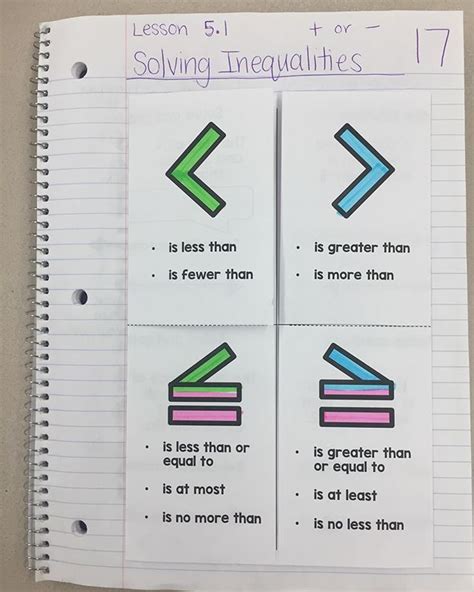 Lesson 5.1 + or -
Solving Inequalities 17
<
• is less than
• is fewer than
>
• is greater than
• is more than
≤
• is less than or
equal to
• is at most
• is no more than
≥
• is greater than
or equal to
• is at least
• is no less than